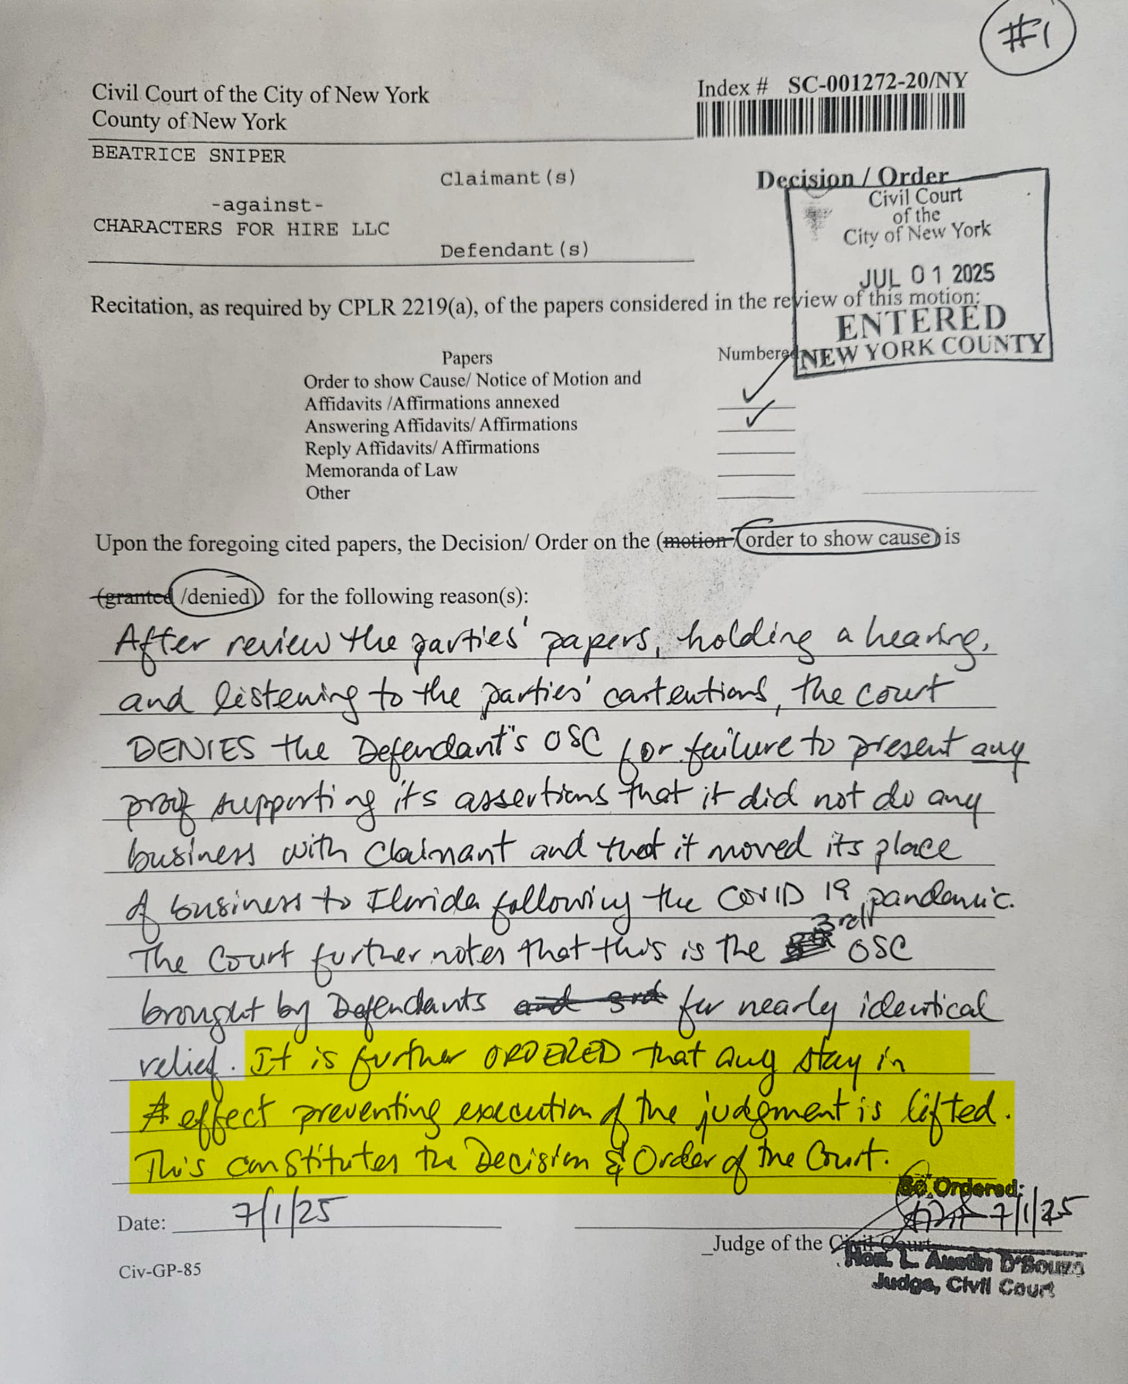 #1
Civil Court of the City of New York
County of New York
Index # SC-001272-20/NY
BEATRICE SNIPER
Claimant(s)
-against-
CHARACTERS FOR HIRE LLC
Defendant(s)
Decision / Order
Civil Court
of the
City of New York
JUL 01 2025
ENTERED
NEW YORK COUNTY
Recitation, as required by CPLR 2219(a), of the papers considered in the review of this motion:
Papers Numbered
Order to show Cause/ Notice of Motion and
Affidavits /Affirmations annexed ✓
Answering Affidavits/ Affirmations ✓
Reply Affidavits/ Affirmations
Memoranda of Law
Other
Upon the foregoing cited papers, the Decision/ Order on the (motion/order to show cause) is
(granted /denied) for the following reason(s):
After review the parties' papers, holding a hearing,
and listening to the parties' contentions, the court
DENIES the Defendant's OSC for failure to present any
proof supporting its assertions that it did not do any
business with Claimant and that it moved its place
of business to Florida following the COVID 19 pandemic.
The Court further notes that this is the 3rd OSC
brought by Defendants and 3rd for nearly identical
relief. It is further ORDERED that any stay in
effect preventing execution of the judgment is lifted.
This constitutes the Decision & Order of the Court.
So Ordered:
Date: 7/1/25
7/1/25
Judge of the Civil Court
Hon. L. Austin D'Souza
Judge, Civil Court
Civ-GP-85